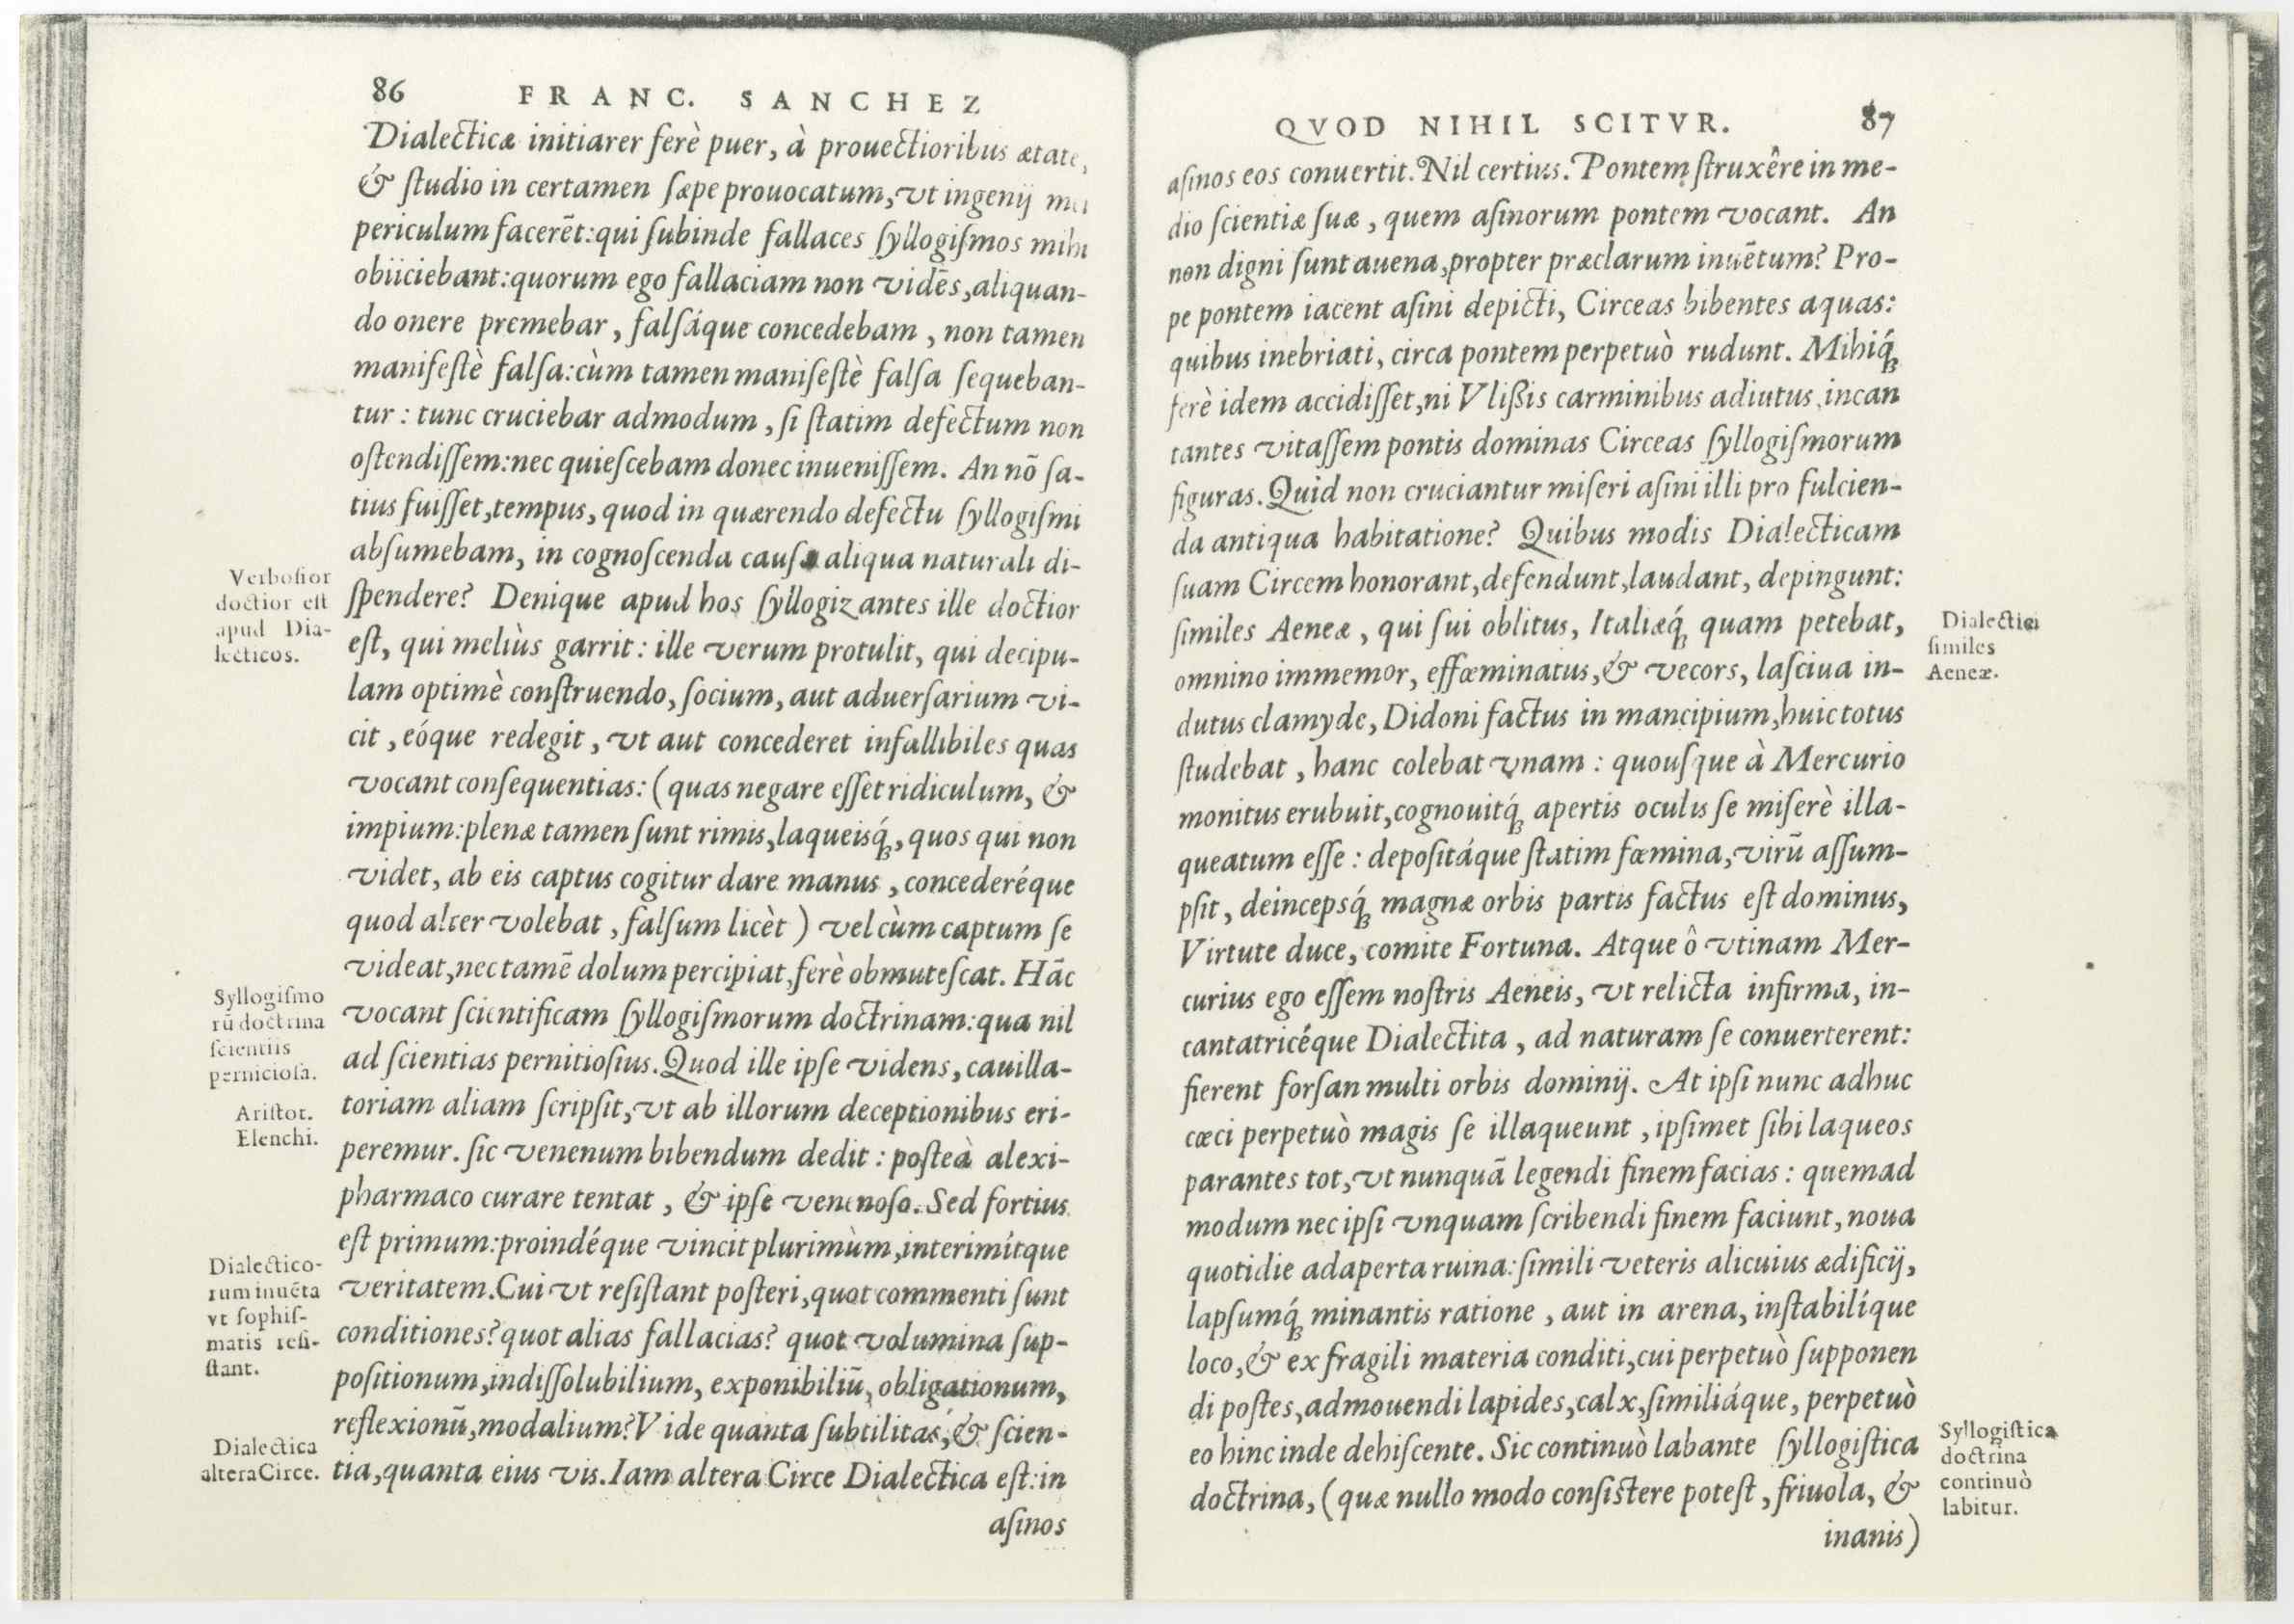 86 FRANC. SANCHEZ
Dialecticæ initiarer ferè puer, à prouectioribus ætate,
& ſtudio in certamen ſæpe prouocatum, vt ingenij
periculum facerēt: qui ſubinde fallaces ſyllogiſmos mihi
obiiciebant: quorum ego fallaciam non vidēs, aliquan-
do onere premebar, falſáque concedebam, non tamen
manifeſtè falſa: cùm tamen manifeſtè falſa ſequeban-
tur: tunc cruciebar admodum, ſi ſtatim defectum non
oſtendiſſem: nec quieſcebam donec inueniſſem. An nō ſa-
tius fuiſſet, tempus, quod in quærendo defectu ſyllogiſmi
abſumebam, in cognoſcenda cauſa aliqua naturali di-
ſpendere? Denique apud hos ſyllogizantes ille doctior
eſt, qui meliùs garrit: ille verum protulit, qui decipu-
lam optimè conſtruendo, ſocium, aut aduerſarium vi-
cit, eóque redegit, vt aut concederet infallibiles quas
vocant conſequentias: (quas negare eſſet ridiculum, &
impium: plenæ tamen ſunt rimis, laqueisq́;, quos qui non
videt, ab eis captus cogitur dare manus, concederéque
quod alter volebat, falſum licèt) vel cùm captum ſe
videat, nec tamē dolum percipiat, ferè obmuteſcat. Hāc
vocant ſcientificam ſyllogiſmorum doctrinam: qua nil
ad ſcientias pernitioſius. Quod ille ipſe videns, cauilla-
toriam aliam ſcripſit, vt ab illorum deceptionibus eri-
peremur. ſic venenum bibendum dedit: poſteà alexi-
pharmaco curare tentat, & ipſe venenoſo. Sed fortius
eſt primum: proindéque vincit plurimùm, interimítque
veritatem. Cui vt reſiſtant poſteri, quot commenti ſunt
conditiones? quot alias fallacias? quot volumina ſup-
poſitionum, indiſſolubilium, exponibiliū, obligationum,
reflexionū, modalium? Vide quanta ſubtilitas, & ſcien-
tia, quanta eius vis. Iam altera Circe Dialectica eſt: in
aſinos
Verboſior
doctior eſt
apud Dia-
lecticos.
Syllogiſmo
rū doctrina
ſcientiis
pernicioſa.
Ariſtot.
Elenchi.
Dialectico-
rum inuēta
vt ſophiſ-
matis reſi-
ſtant.
Dialectica
altera Circe.
QVOD NIHIL SCITVR. 87
aſinos eos conuertit. Nil certius. Pontem ſtruxêre in me-
dio ſcientiæ ſuæ, quem aſinorum pontem vocant. An
non digni ſunt auena, propter præclarum inuētum? Pro-
pe pontem iacent aſini depicti, Circeas bibentes aquas:
quibus inebriati, circa pontem perpetuò rudunt. Mihiq́;
ferè idem accidiſſet, ni Vlißis carminibus adiutus, incan
tantes vitaſſem pontis dominas Circeas ſyllogiſmorum
figuras. Quid non cruciantur miſeri aſini illi pro fulcien-
da antiqua habitatione? Quibus modis Dialecticam
ſuam Circem honorant, defendunt, laudant, depingunt:
ſimiles Aeneæ, qui ſui oblitus, Italiæq́; quam petebat,
omnino immemor, effœminatus, & vecors, laſciua in-
dutus clamyde, Didoni factus in mancipium, huic totus
ſtudebat, hanc colebat vnam: quouſque à Mercurio
monitus erubuit, cognouitq́; apertis oculis ſe miſerè illa-
queatum eſſe: depoſitáque ſtatim fœmina, virū aſſum-
pſit, deincepsq́; magnæ orbis partis factus eſt dominus,
Virtute duce, comite Fortuna. Atque ô vtinam Mer-
curius ego eſſem noſtris Aeneis, vt relicta infirma, in-
cantatricéque Dialectita, ad naturam ſe conuerterent:
fierent forſan multi orbis dominij. At ipſi nunc adhuc
cœci perpetuò magis ſe illaqueunt, ipſimet ſibi laqueos
parantes tot, vt nunquā legendi finem facias: quemad
modum nec ipſi vnquam ſcribendi finem faciunt, noua
quotidie adaperta ruina: ſimili veteris alicuius ædificij,
lapſumq́; minantis ratione, aut in arena, inſtabilíque
loco, & ex fragili materia conditi, cui perpetuò ſupponen
di poſtes, admouendi lapides, calx, ſimiliáque, perpetuò
eo hinc inde dehiſcente. Sic continuò labante ſyllogiſtica
doctrina, (quæ nullo modo conſiſtere poteſt, friuola, &
inanis)
Dialectici
ſimiles
Aeneæ.
Syllogiſtica
doctrina
continuò
labitur.